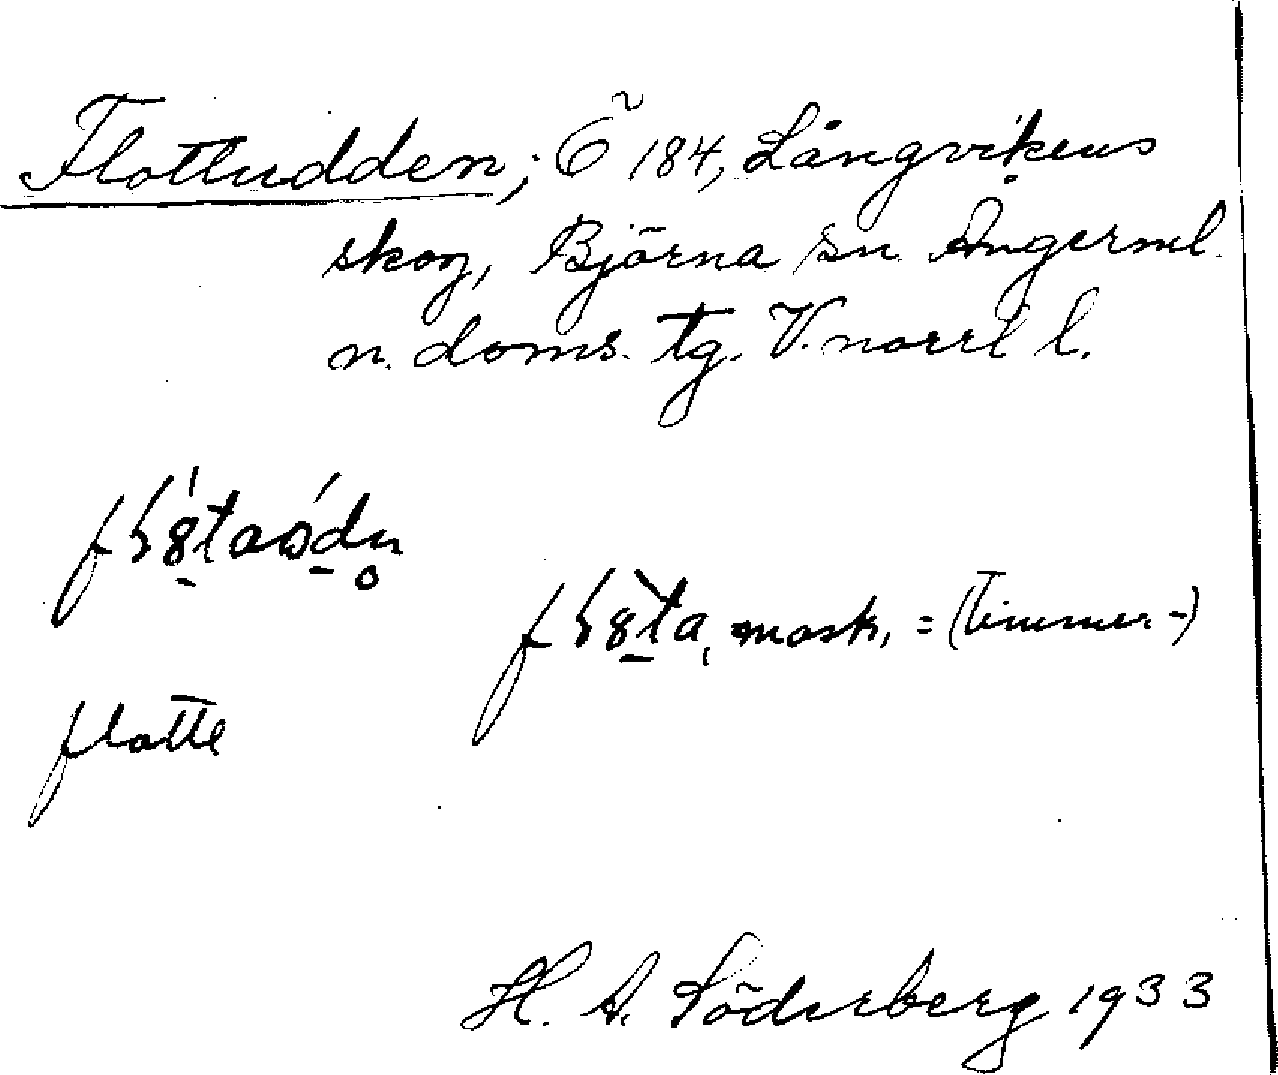 Flottudden; Ö 184, Långvikens
skog, Björna sn. Ångerml.
n. doms. tg. V.norrl l.
mask, = (Timmer-)
flotte
H. A. Söderberg 1933